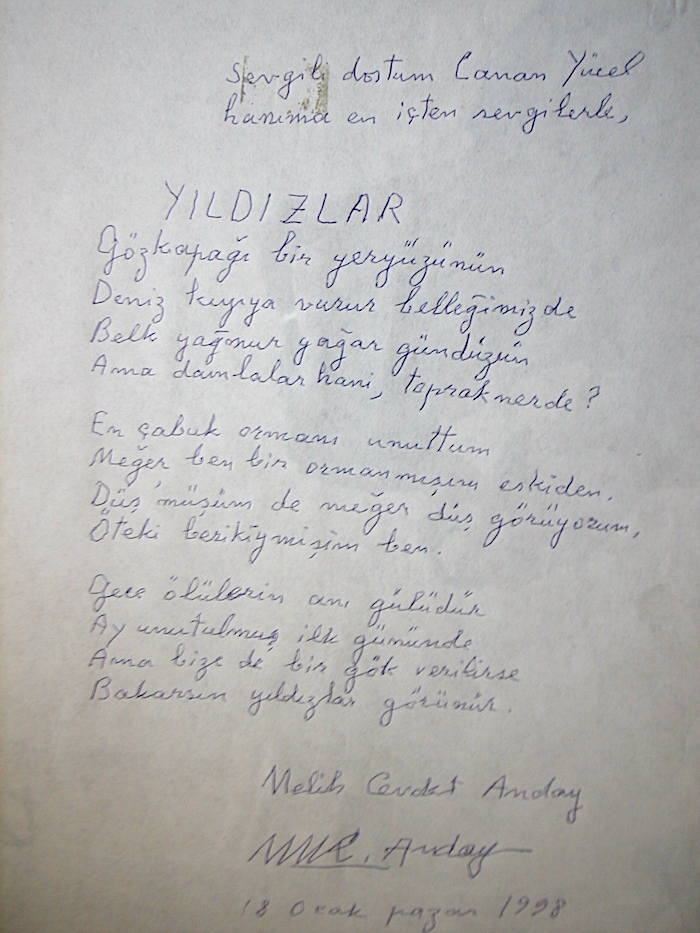 Sevgili dostum Canan Yücel
hanıma en içten sevgilerle,
YILDIZLAR
Gözkapağı bir yeryüzünün
Deniz kıyıya vurur belleğimizde
Belk yağmur yağar gündüzün
Ama damlalar hani, toprak nerde?
En çabuk ormanı unuttum
Meğer ben bir ormanmışım eskiden.
Düş'müşüm de meğer düş görüyorum,
Öteki berikiymişim ben.
Gece ölülerin anı gülüdür
Ay unutulmuş ilk gününde
Ama bize de bir gök verilirse
Bakarsın yıldızlar görünür.
Melih Cevdet Anday
M.C. Anday
18 Ocak pazar 1998